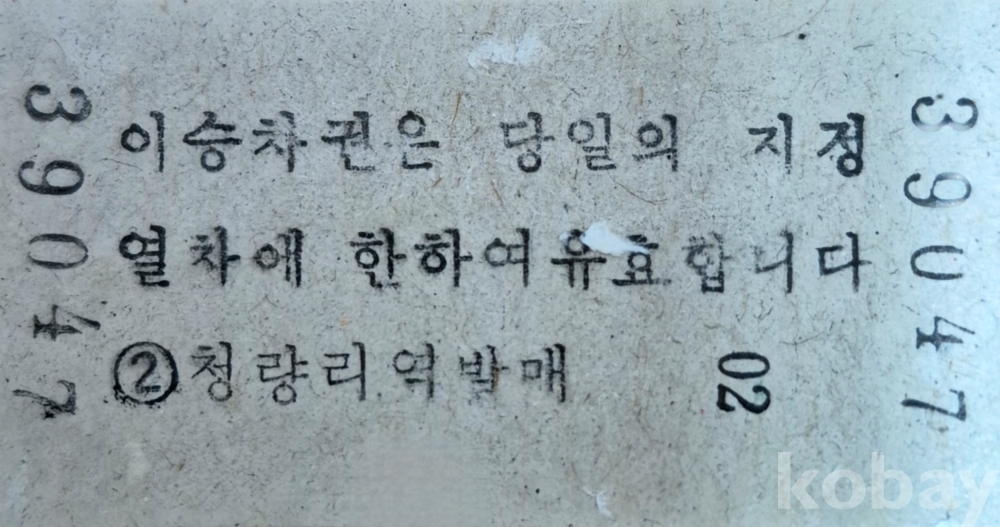 이승차권은 당일의 지정
열차애 한하여유효합니다
②청량리역발매 02
39047
39047
kobay